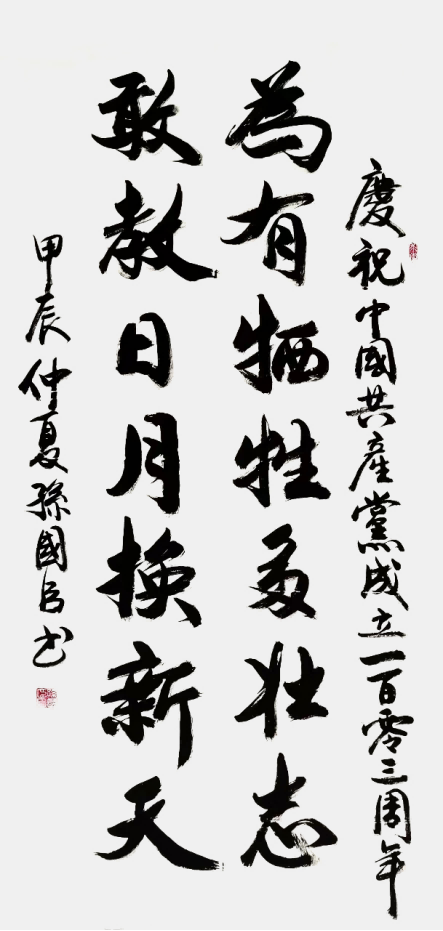 慶祝中國共產黨成立一百零三周年
為有牺牲多壮志
敢教日月換新天
甲辰仲夏孫國良书